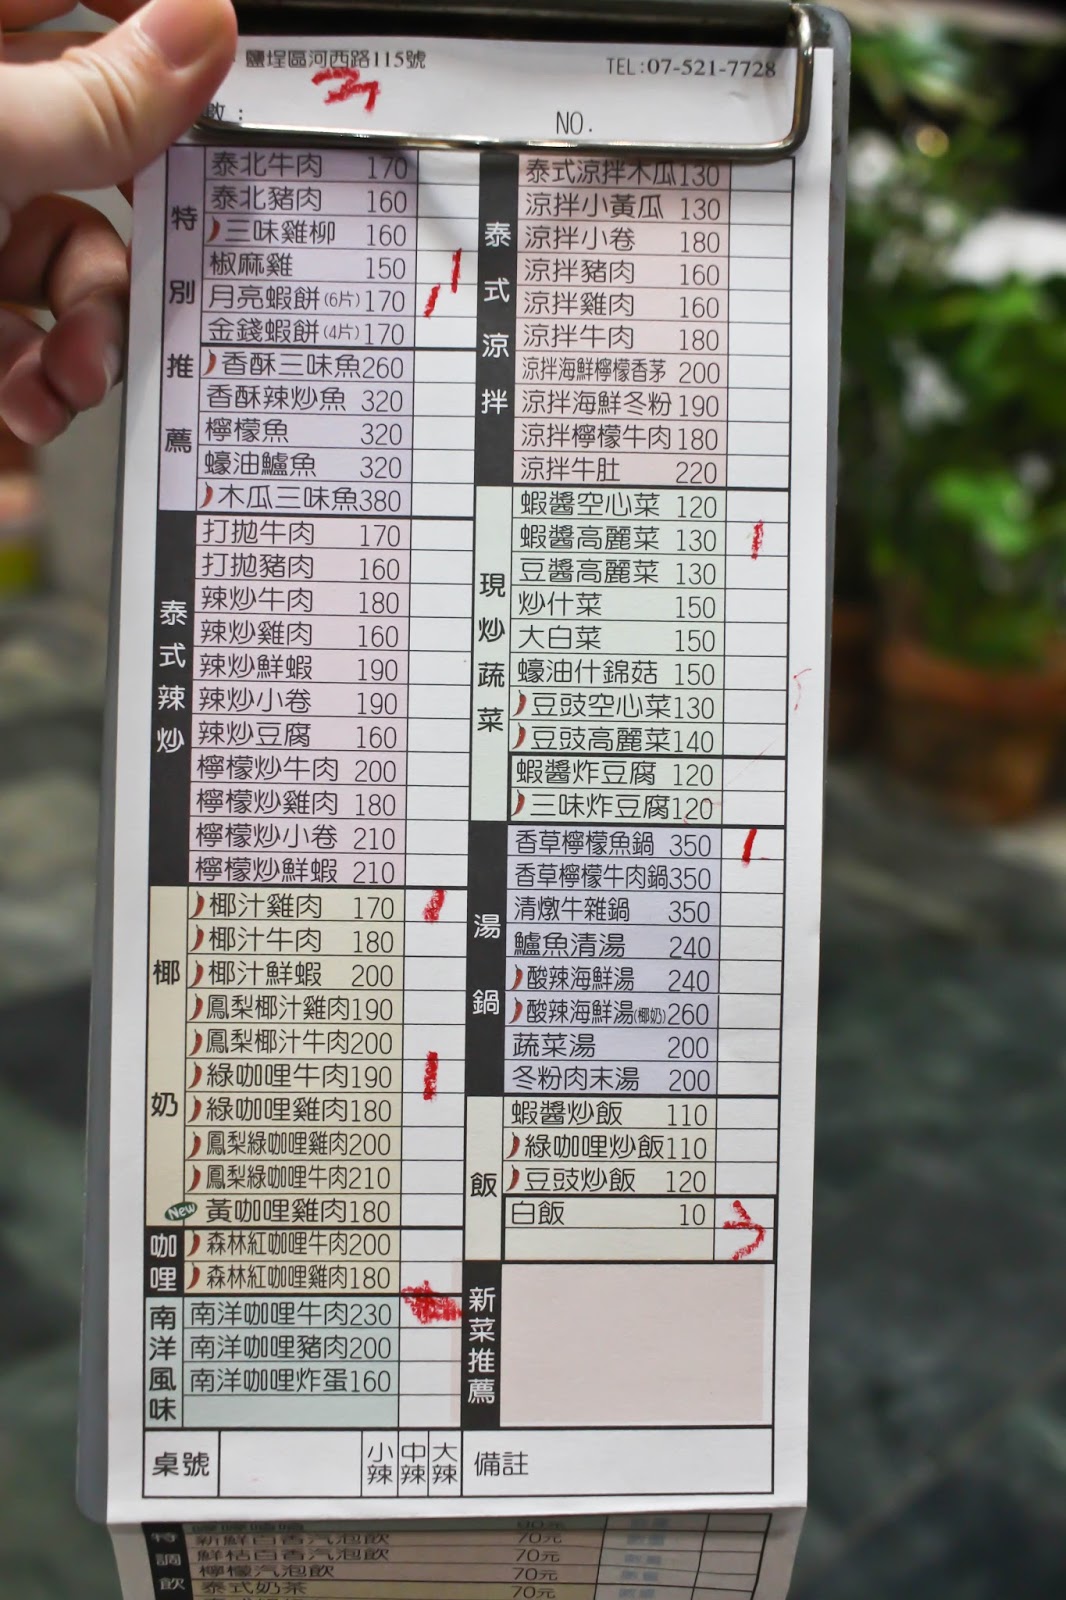 鹽埕區河西路115號
TEL:07-521-7728
數:
NO.
特別推薦
泰北牛肉 170
泰北豬肉 160
三味雞柳 160
椒麻雞 150 1
月亮蝦餅(6片) 170 1
金錢蝦餅(4片) 170
香酥三味魚 260
香酥辣炒魚 320
檸檬魚 320
蠔油鱸魚 320
木瓜三味魚 380
泰式辣炒
打拋牛肉 170
打拋豬肉 160
辣炒牛肉 180
辣炒雞肉 160
辣炒鮮蝦 190
辣炒小卷 190
辣炒豆腐 160
檸檬炒牛肉 200
檸檬炒雞肉 180
檸檬炒小卷 210
檸檬炒鮮蝦 210
椰奶
椰汁雞肉 170 1
椰汁牛肉 180
椰汁鮮蝦 200
鳳梨椰汁雞肉 190
鳳梨椰汁牛肉 200
綠咖哩牛肉 190 1
綠咖哩雞肉 180
鳳梨綠咖哩雞肉 200
鳳梨綠咖哩牛肉 210
New 黃咖哩雞肉 180
咖哩
森林紅咖哩牛肉 200
森林紅咖哩雞肉 180
南洋風味
南洋咖哩牛肉 230
南洋咖哩豬肉 200
南洋咖哩炸蛋 160
泰式涼拌
泰式涼拌木瓜 130
涼拌小黃瓜 130
涼拌小卷 180
涼拌豬肉 160
涼拌雞肉 160
涼拌牛肉 180
涼拌海鮮檸檬香茅 200
涼拌海鮮冬粉 190
涼拌檸檬牛肉 180
涼拌牛肚 220
現炒蔬菜
蝦醬空心菜 120
蝦醬高麗菜 130 1
豆醬高麗菜 130
炒什菜 150
大白菜 150
蠔油什錦菇 150
豆豉空心菜 130
豆豉高麗菜 140
蝦醬炸豆腐 120
三味炸豆腐 120
湯鍋
香草檸檬魚鍋 350 1
香草檸檬牛肉鍋 350
清燉牛雜鍋 350
鱸魚清湯 240
酸辣海鮮湯 240
酸辣海鮮湯(椰奶) 260
蔬菜湯 200
冬粉肉末湯 200
飯
蝦醬炒飯 110
綠咖哩炒飯 110
豆豉炒飯 120
白飯 10 3
新菜推薦
桌號 小辣 中辣 大辣 備註
特調飲
新鮮百香汽泡飲 70元
鮮桔百香汽泡飲 70元
檸檬汽泡飲 70元
泰式奶茶 70元